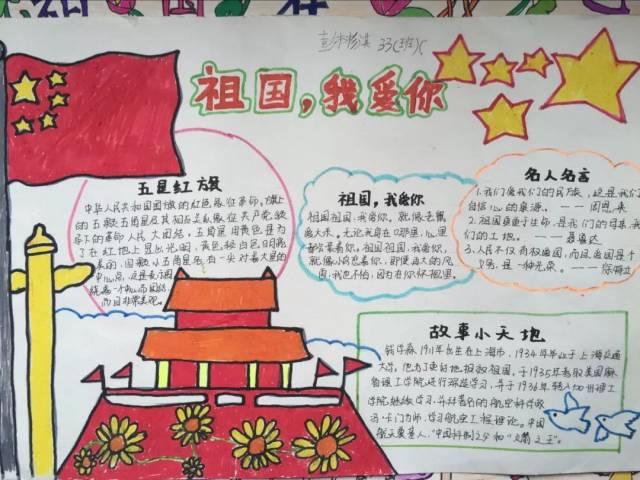 彭 33(班)(
祖国,我爱你
五星红旗
中华人民共和国国旗的红色象征革命。旗上
的五颗五角星及其相互关系象征共产党领
导下的革命人民大团结。五角星用黄色是为
了在红地上显出光明,黄色较白色明亮
美丽,四颗小五角星各有一尖对着大星的
中心点,这是表示围
绕着一个中心而团结,
而且非常美观。
祖国,我爱你
祖国祖国,我爱你,就像老鼠
爱大米。无论我身在哪里,心里
都装着你。祖国祖国,我爱你,
就像小鸟恋着你,那里有
我也不怕,因为在你怀抱里。
名人名言
1.我们爱我们的民族,这是我们
自信心的泉源。——周恩来
2.祖国更重于生命,是我们的母亲,我
们的土地。——聂鲁达
3.人民不仅有权爱国,而且爱国是个
义务,是一种光荣。——徐特立
故事小天地
钱学森1911年出生在上海市,1934年毕业于上海交通
大学。他为了更好地报效祖国,于1935年考取美国麻
省理工学院进行深造学习,并于1936年转入加州理工
学院继续学习,并拜著名的航空科学家
冯·卡门为师,学习航空工程理论。中国
航天奠基人,“中国科制之父”和“火箭之王”。